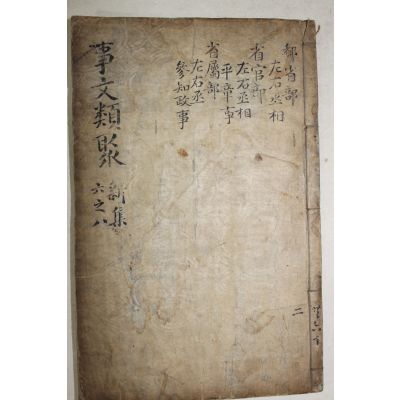 都省部
左右丞相
省官部
左右丞相
平章事
省屬部
左右丞
參知政事
事文類聚
新集
六之八
二